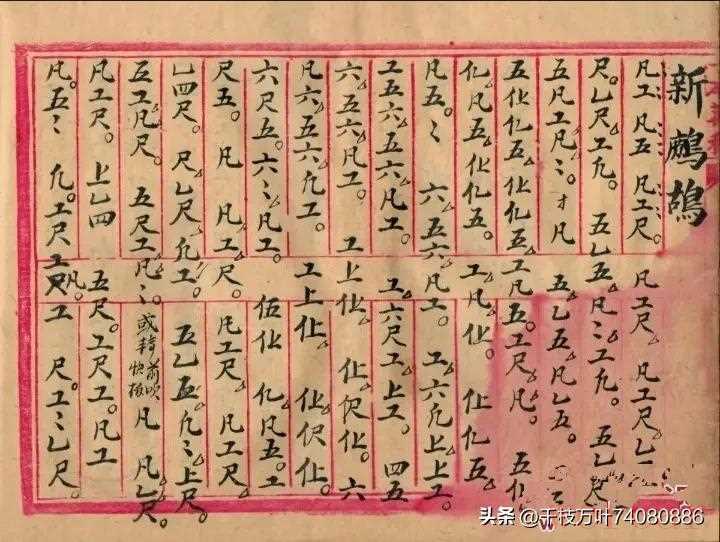 新鷓鴣
凡工凡五凡工尺 凡工尺 凡工尺乚
尺乚尺工凢 五乚五凡〻工凢 五乚尺
五凡工凡〻才凡 五乚五凡乚五
五仩亿五仩亿五工凡五工尺凡 五
亿凡五仩亿五 工凡仩 仩亿五
凡五〻 六五六凡工 工六凢上上工
工五六五六凡工 工六尺工上工 四五
六五六凡工 工上仩 仩伬仩 六
凡六五六凢工 工上仩 仩伬仩
六尺五六〻凡工 伍仩 亿凡五工
尺五凡 凡工尺 凡工尺 凡工尺
乚四尺 尺乚尺凢工 五乚五凢〻上尺
五工凡尺 五尺工凡〻 或轉前吹快板 凡 凡乚尺
凡工尺 上乚四 五尺工尺工凡工
凡五〻 凢工尺工凡工 尺工〻乚尺
头条 @千枝万叶74080886